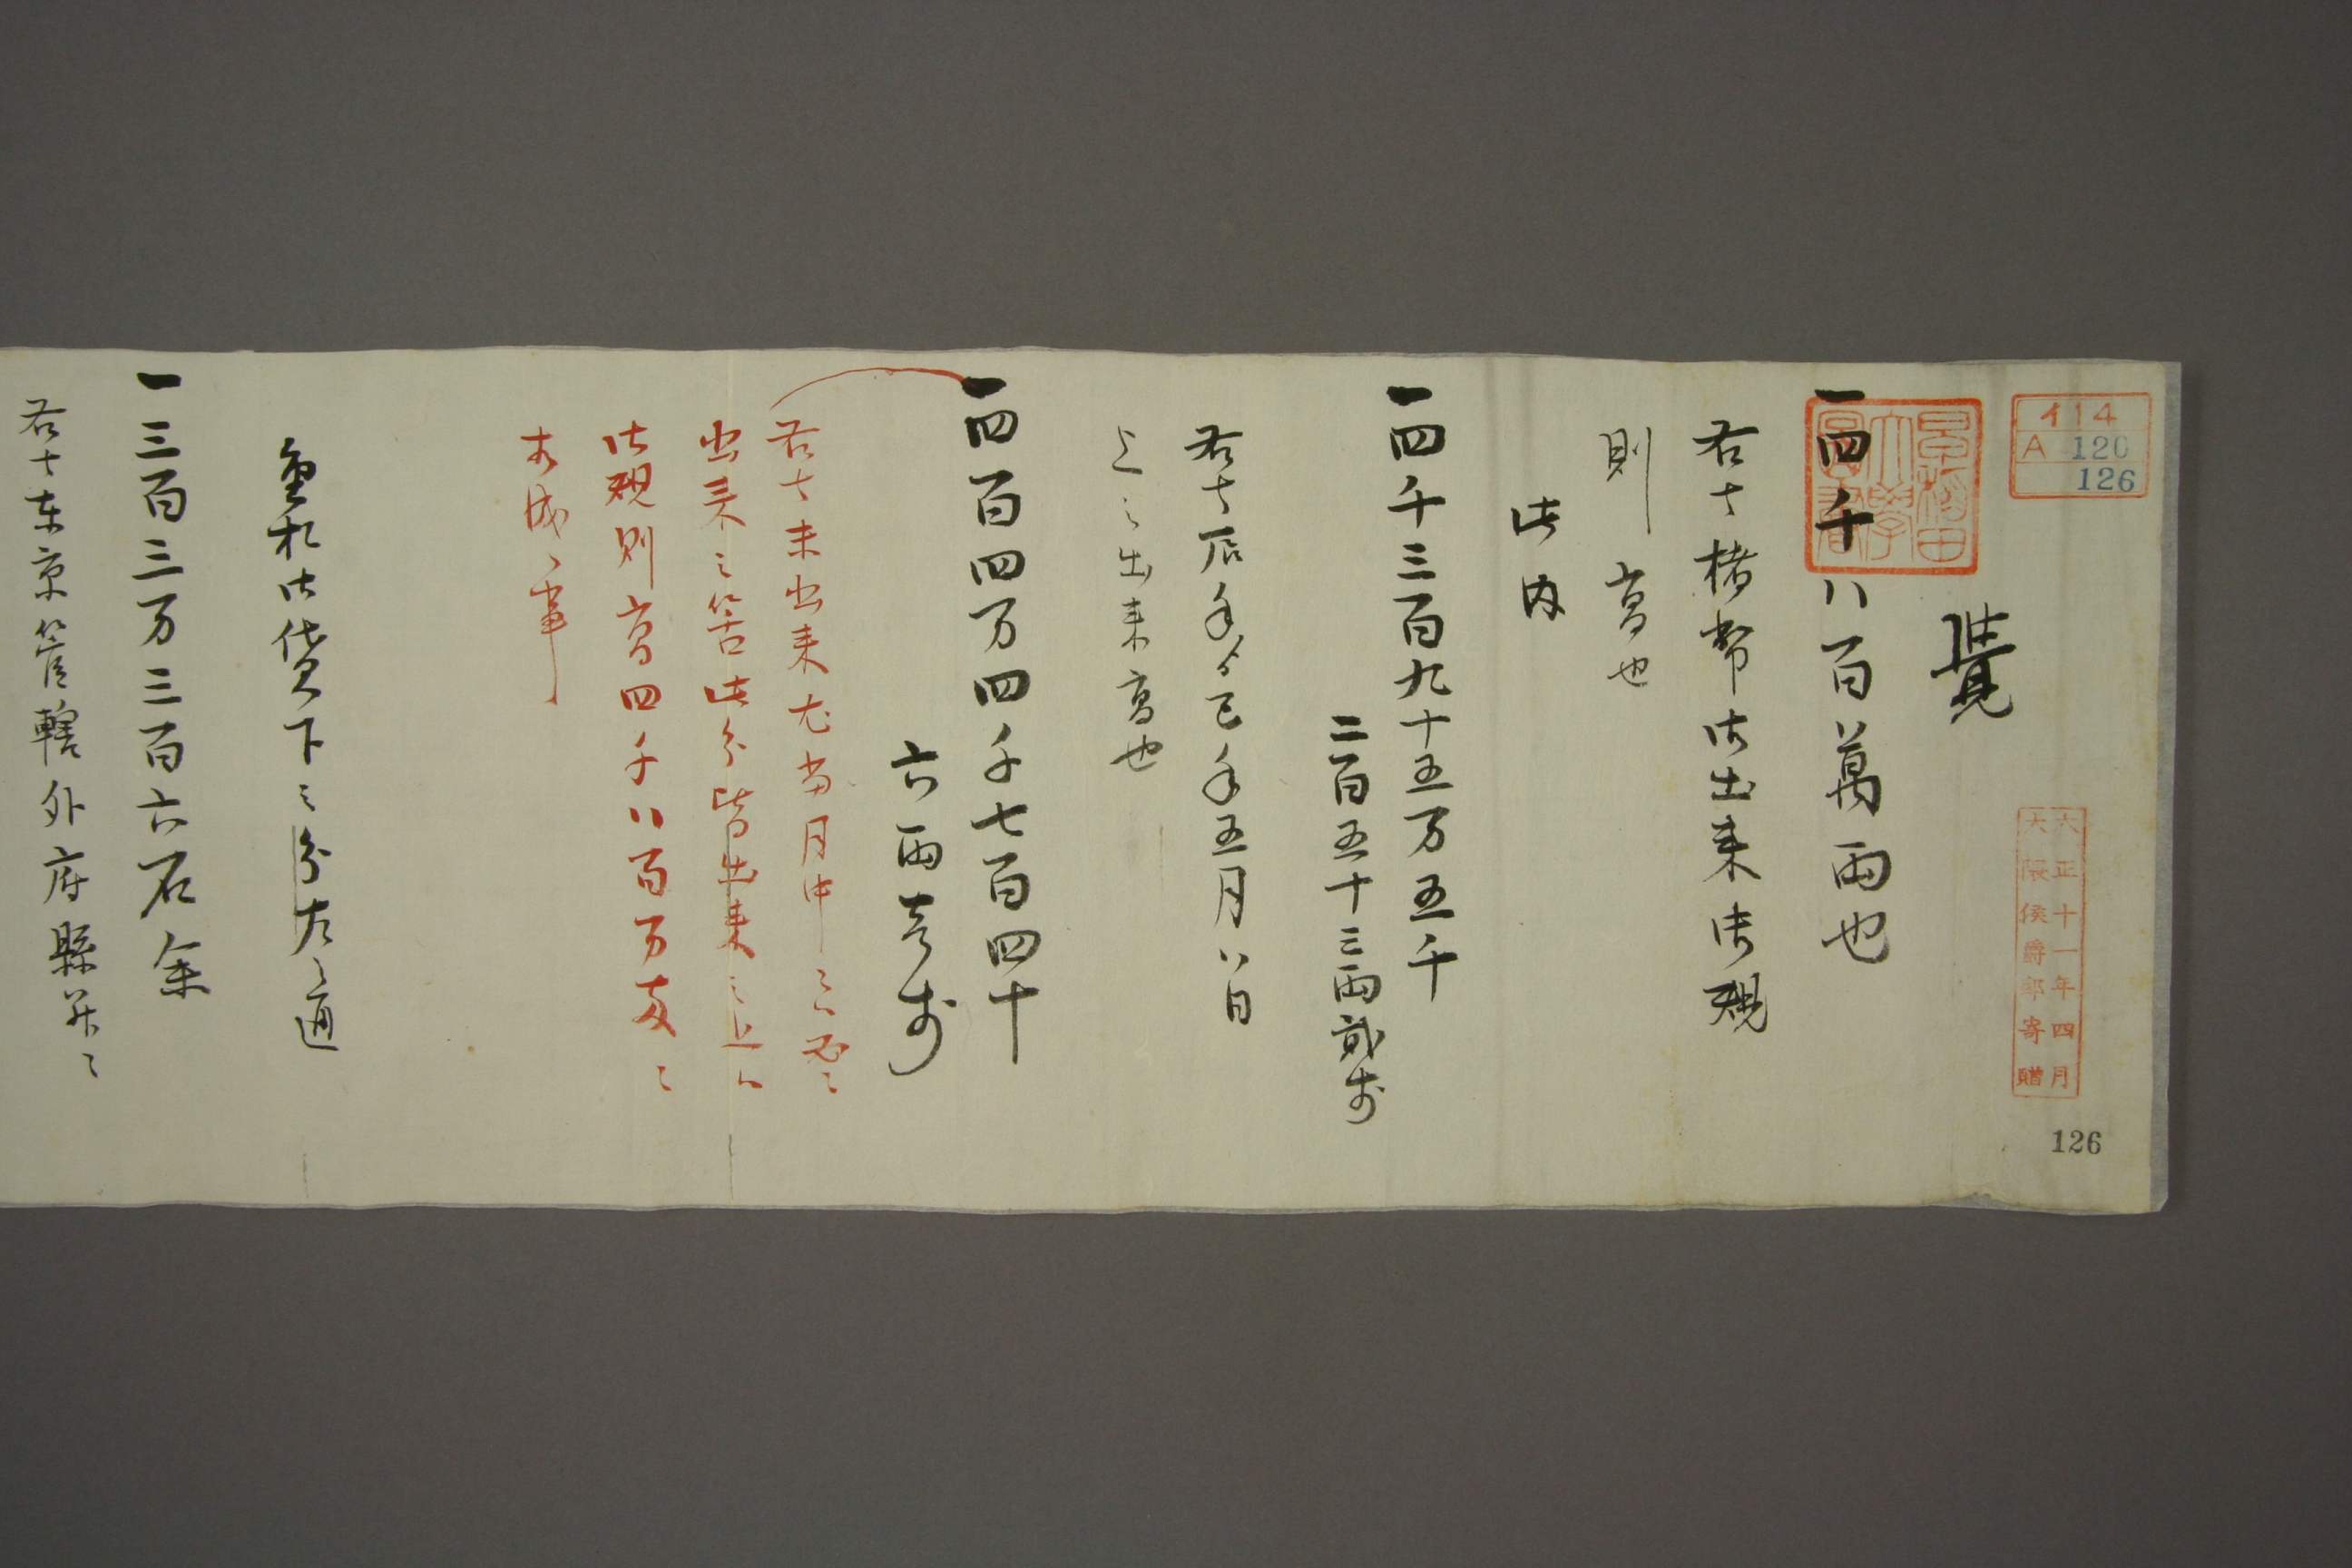 イ14
A 120
126
大正十一年四月
大隈侯爵郎寄贈
126
覺
一四千八百萬両也
右者楮幣御出来御規
則高也
此内
一四千三百九十五万五千
二百五十三両弐歩
右者辰年ゟ巳年五月八日
迄之出来高也
一四百四万四千七百四十
六両壱歩
右者未出来尤当月中ニ
出来之筈此分皆出来之上ハ
御規則高四千八百万両ニ
相成事
金札御貸下之分左之通
一三百三万三百六石余
右者東京管轄外府縣并ニ